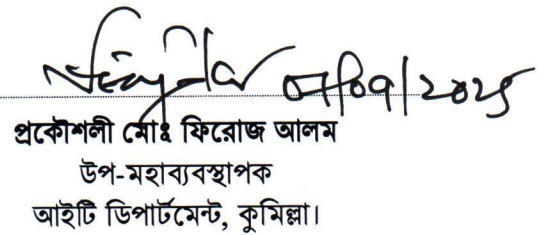 প্রকৌশলী মোঃ ফিরোজ আলম
উপ-মহাব্যবস্থাপক
আইটি ডিপার্টমেন্ট, কুমিল্লা।